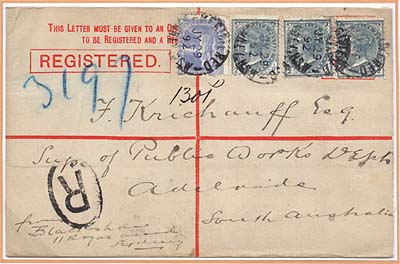 THIS LETTER MUST BE GIVEN TO AN
TO BE REGISTERED AND A
REGISTERED.
3197
1301
F. Krichauff Esq.
Sup of Public Works Dept
Adelaide
South Australia
R
from
11 Royal
Sydney